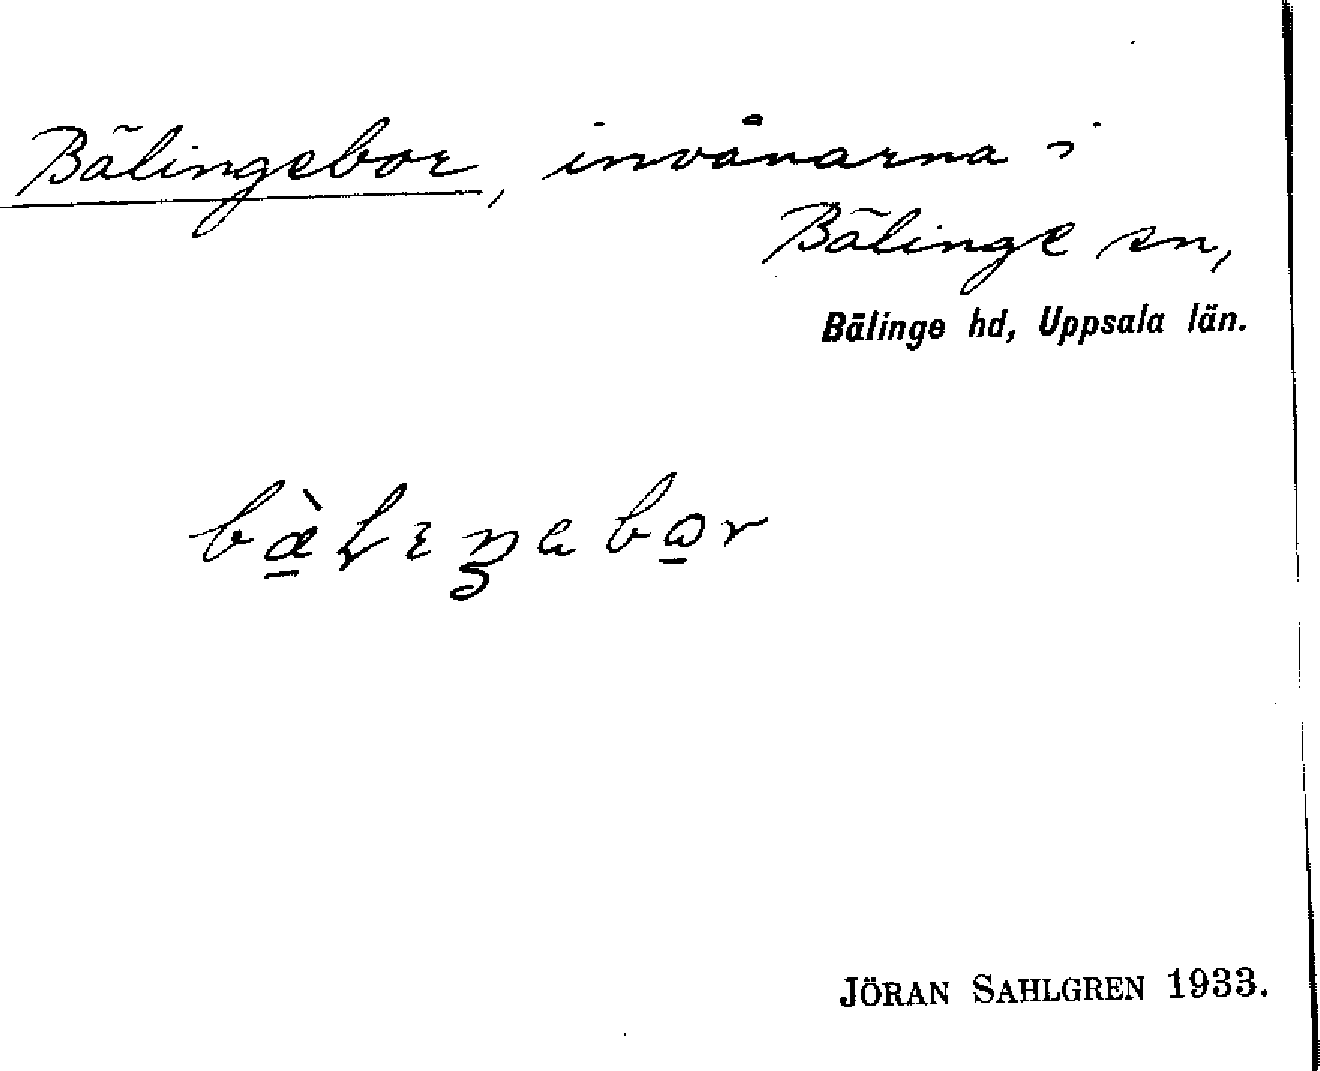 Bälingebor, invånarna i
Bälinge sn,
Bälinge hd, Uppsala län.
JÖRAN SAHLGREN 1933.